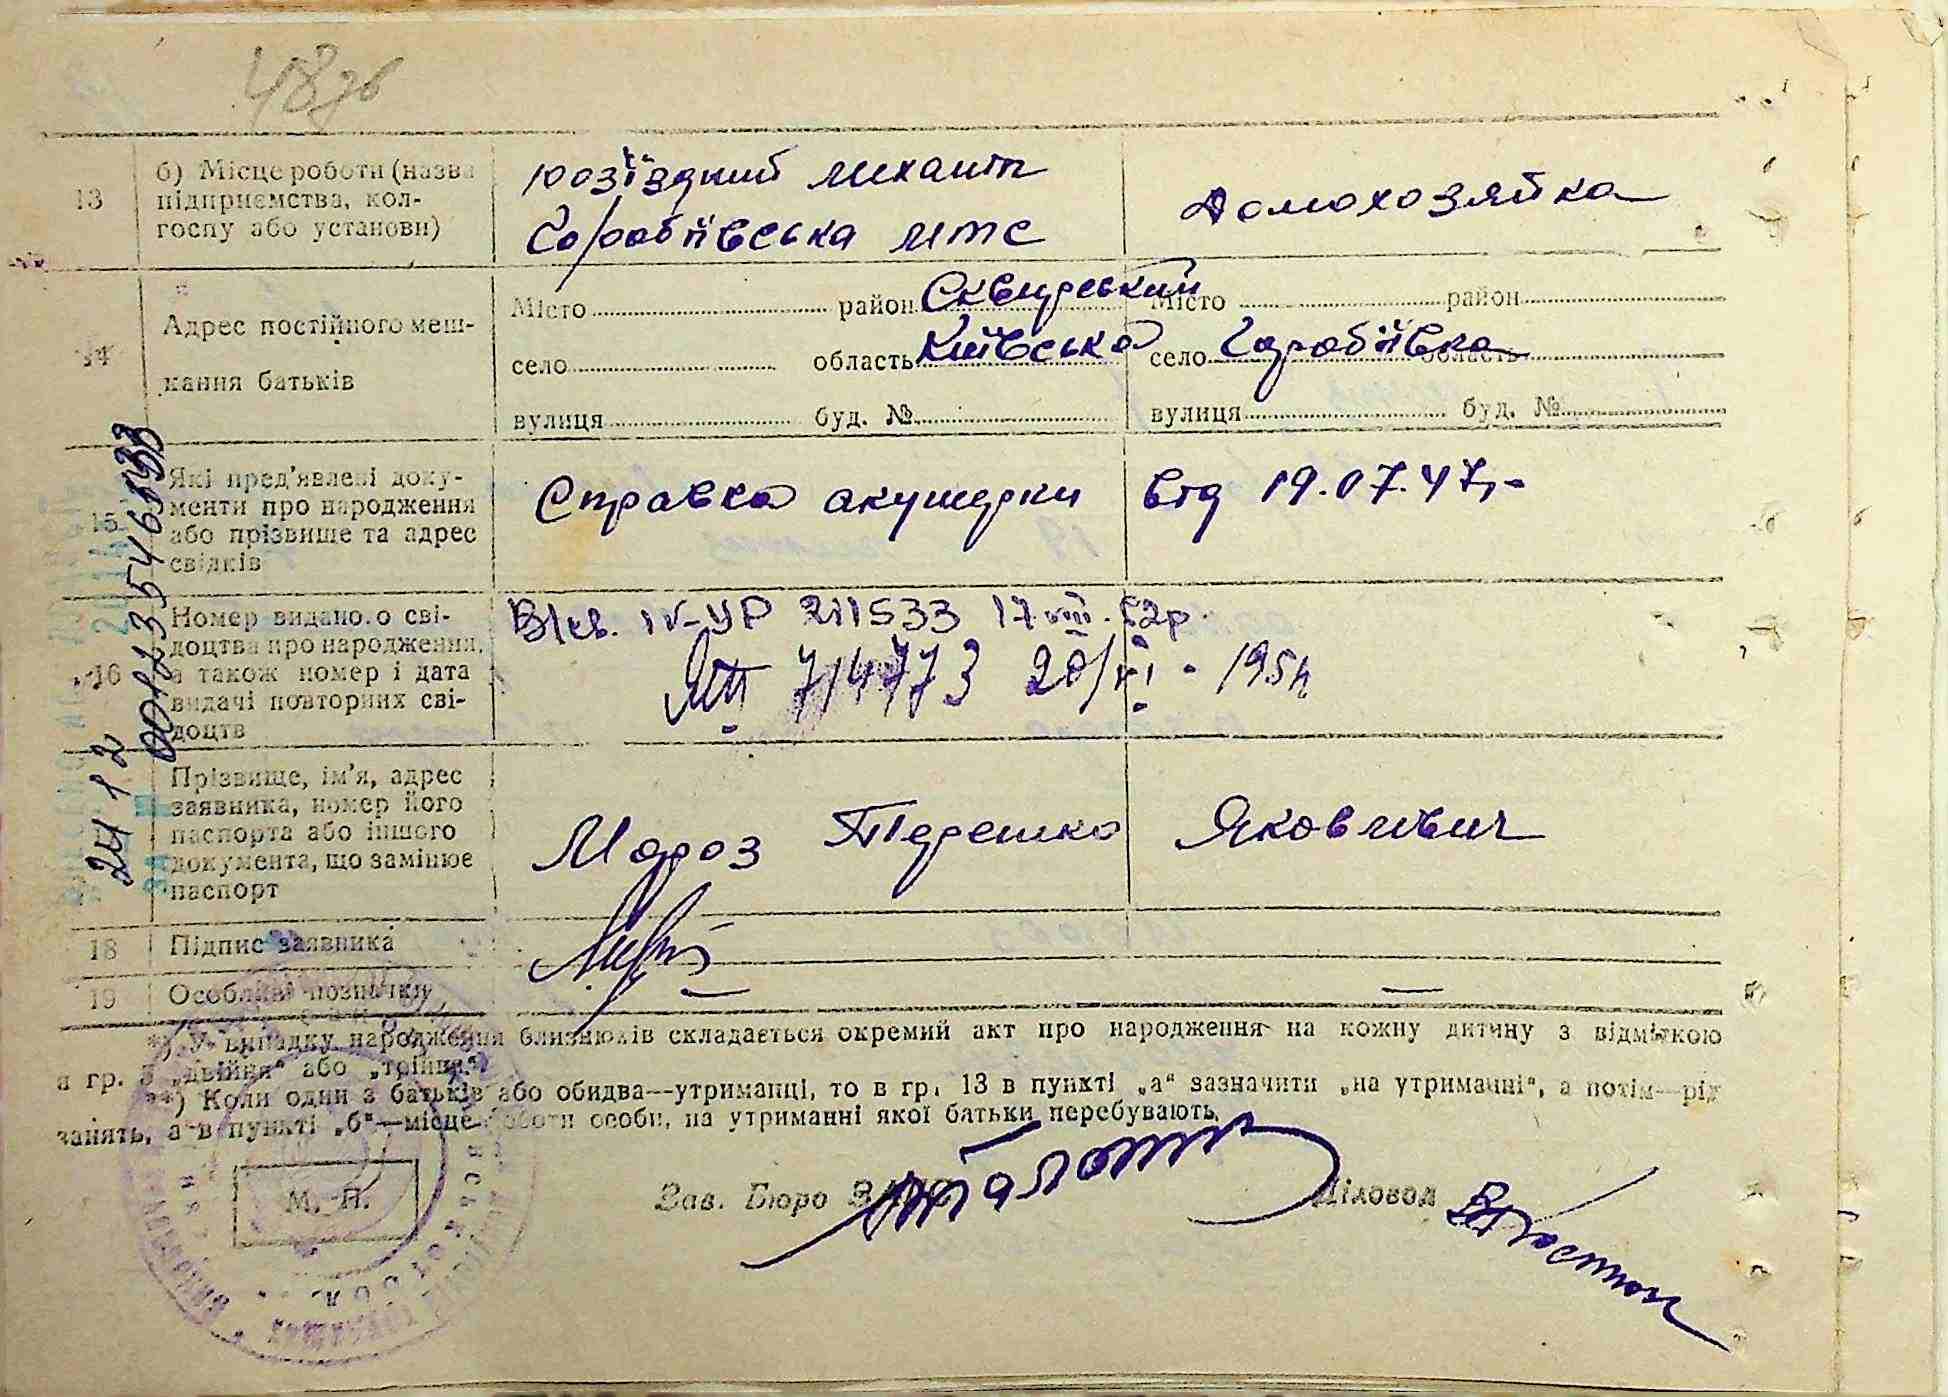 48зв
13
б) Місце роботи (назва
підприємства, кол-
госпу або установи)
роз'їздний михаик
Горобіївська мтс
Домохозяйка
14
Адрес постійного меш-
кання батьків
Місто район Сквирський
село область Київська
вулиця буд. №
Місто район
село Горобіївка область
вулиця буд. №
15
Які пред'явлені доку-
менти про народження
або прізвище та адрес
свідків
Справка акушерки від 19.07.47.-
16
Номер видано.о сві-
доцтва про народження,
а також номер і дата
видачі повторних сві-
доцтв
IV-УР 211533 17.VIII.52р.
714773 20/VI - 195
Прізвище, ім'я, адрес
заявника, номер його
паспорта або іншого
документа, що замінює
паспорт
Мороз Терешко Якович
18
Підпис заявника
19
Особливі позначки
— —
*) У випадку народження близнюків складається окремий акт про народження на кожну дитину з відміткою
в гр. 3 „двійня" або „трійня".
**) Коли один з батьків або обидва—утриманці, то в гр. 13 в пункті „а" зазначити „на утриманні", а потім—рід
занять, а в пункті „б"—місце роботи особи, на утриманні якої батьки перебувають.
М. П.
Зав. Бюро ЗАГС
Діловод
24 12